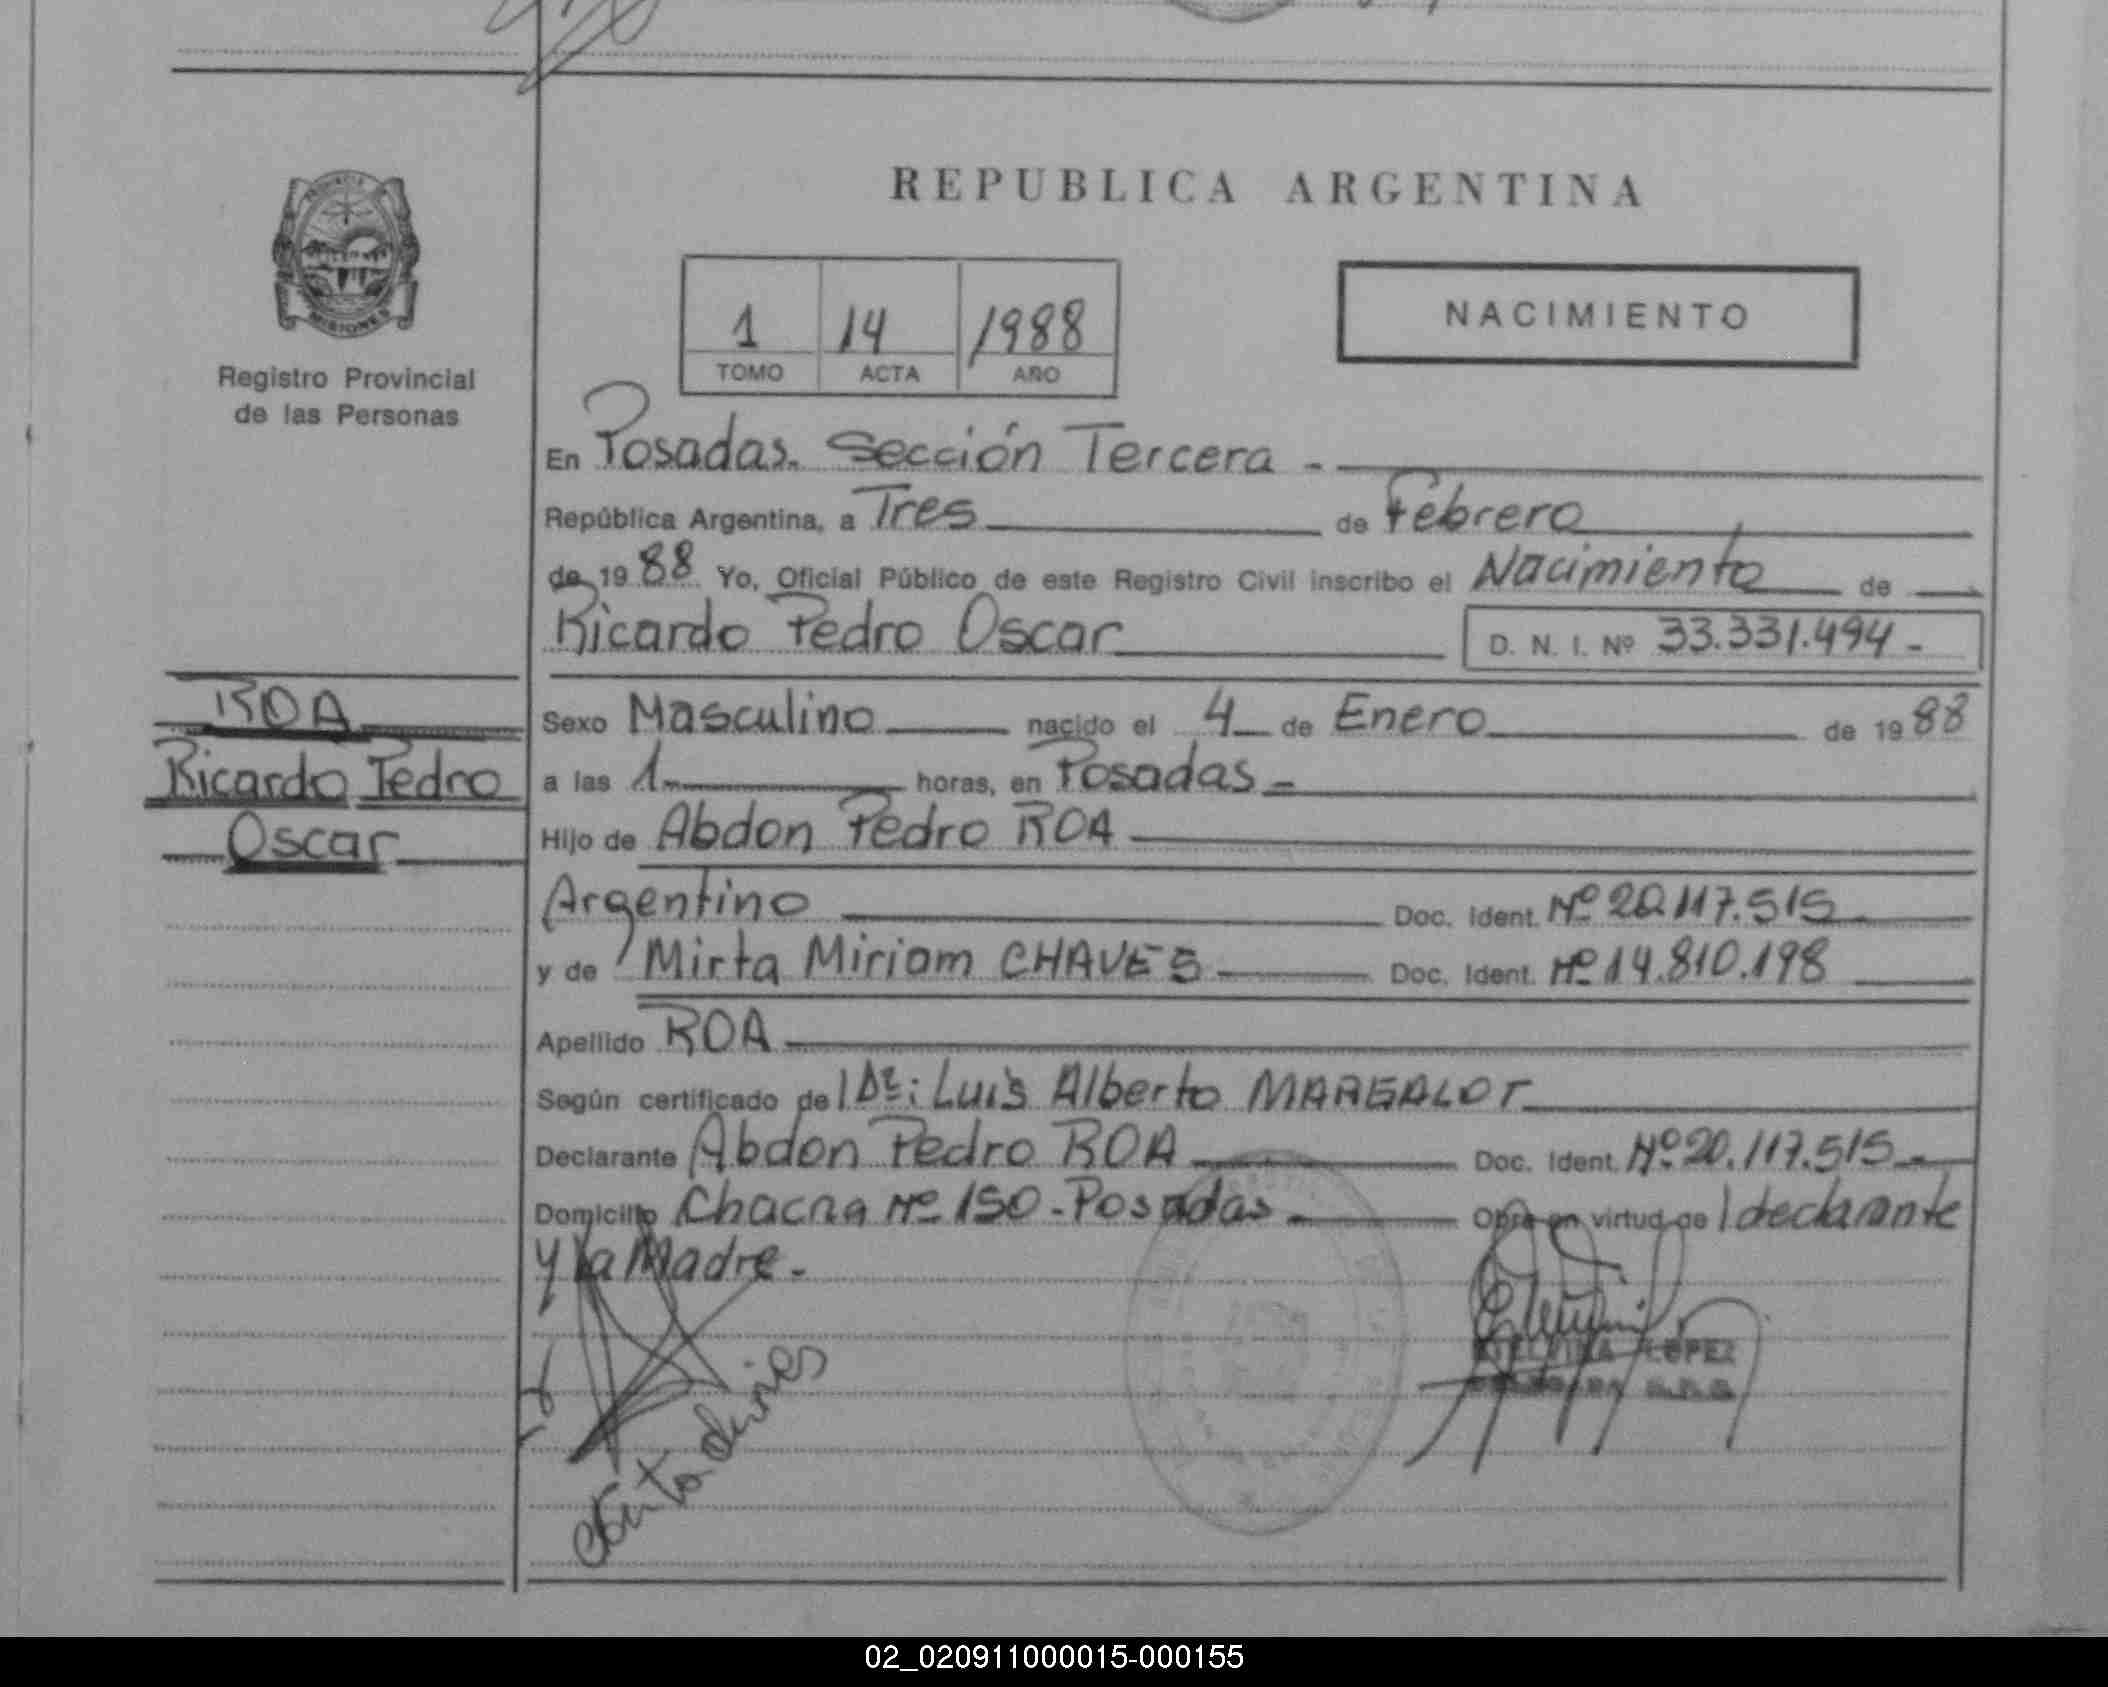 REPUBLICA ARGENTINA
MISIONES
Registro Provincial
de las Personas
1 14 1988
TOMO ACTA AÑO
NACIMIENTO
En Posadas. Sección Tercera -
República Argentina, a Tres de Febrero
de 1988 Yo, Oficial Público de este Registro Civil inscribo el Nacimiento de
Ricardo Pedro Oscar D. N. I. Nº 33.331.494-
ROA
Ricardo Pedro
Oscar
Sexo Masculino nacido el 4 de Enero de 1988
a las 1 horas, en Posadas-
Hijo de Abdon Pedro ROA
Argentino Doc. Ident. Nº 20.117.515
y de Mirta Miriam CHAVES Doc. Ident. Nº 14.810.198
Apellido ROA
Según certificado del Dr: Luis Alberto
Declarante Abdon Pedro ROA Doc. Ident. Nº 20.117.515-
Domicilio Chacra Nº 150-Posadas- Obra en virtud de l declarante
y la Madre-
LOPEZ
02_020911000015-000155